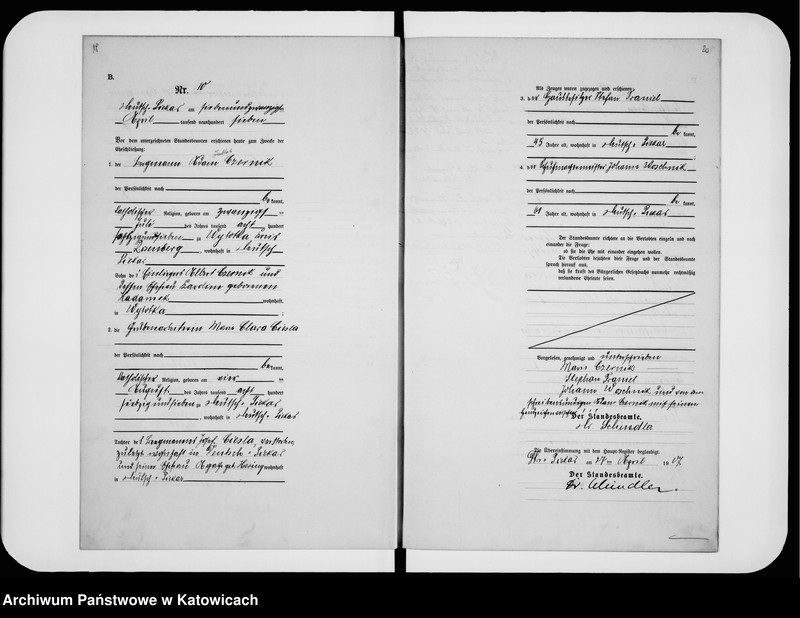 B.
Nr. 10
Deutsch-Piekar am siebenundzwanzigsten
April tausend neunhundert sieben
Vor dem unterzeichneten Standesbeamten erschienen heute zum Zwecke der
Eheschließung:
1. der Bergmann Adam Czernik
der Persönlichkeit nach
be kannt,
katholischer Religion, geboren am zwanzigsten
Juli des Jahres tausend acht hundert
zu Wysoka Kreis
, wohnhaft in Deutsch-
Piekar
Sohn des Einliegers Albert Czernik und
dessen Ehefrau Karoline geborenen
wohnhaft
in Wysoka ;
2. die Grubenarbeiterin Marie Clara Ciesla
der Persönlichkeit nach
be kannt,
katholischer Religion, geboren am vier
August des Jahres tausend acht hundert
siebzig und sieben zu Deutsch-Piekar
, wohnhaft in Deutsch-Piekar
Tochter des Bergmanns Josef Ciesla, verstorben,
zuletzt wohnhaft in Deutsch-Piekar
und seiner Ehefrau Agathe geb. wohnhaft
in Deutsch-Piekar
20
Als Zeugen waren zugezogen und erschienen:
3. der Hausbesitzer Stefan
der Persönlichkeit nach
be kannt,
45 Jahre alt, wohnhaft in Deutsch-Piekar
;
4. der Schuhmachermeister Johann Woschnik
der Persönlichkeit nach
be kannt,
61 Jahre alt, wohnhaft in Deutsch-Piekar
Der Standesbeamte richtete an die Verlobten einzeln und nach
einander die Frage:
ob sie die Ehe mit einander eingehen wollen.
Die Verlobten bejahten diese Frage und der Standesbeamte
sprach hierauf aus,
daß sie kraft des Bürgerlichen Gesetzbuchs nunmehr rechtmäßig
verbundene Eheleute seien.
Vorgelesen, genehmigt und unterschrieben
Marie Czernik
Stephan
Johann Woschnik und von dem
schreibensunkundigen Adam Czernik mit seinem
Handzeichen versehen
Der Standesbeamte.
Schindler
Die Übereinstimmung mit dem Haupt-Register beglaubigt.
Dt.-Piekar am 27ten April 1907
Der Standesbeamte.
Schindler.
Archiwum Państwowe w Katowicach